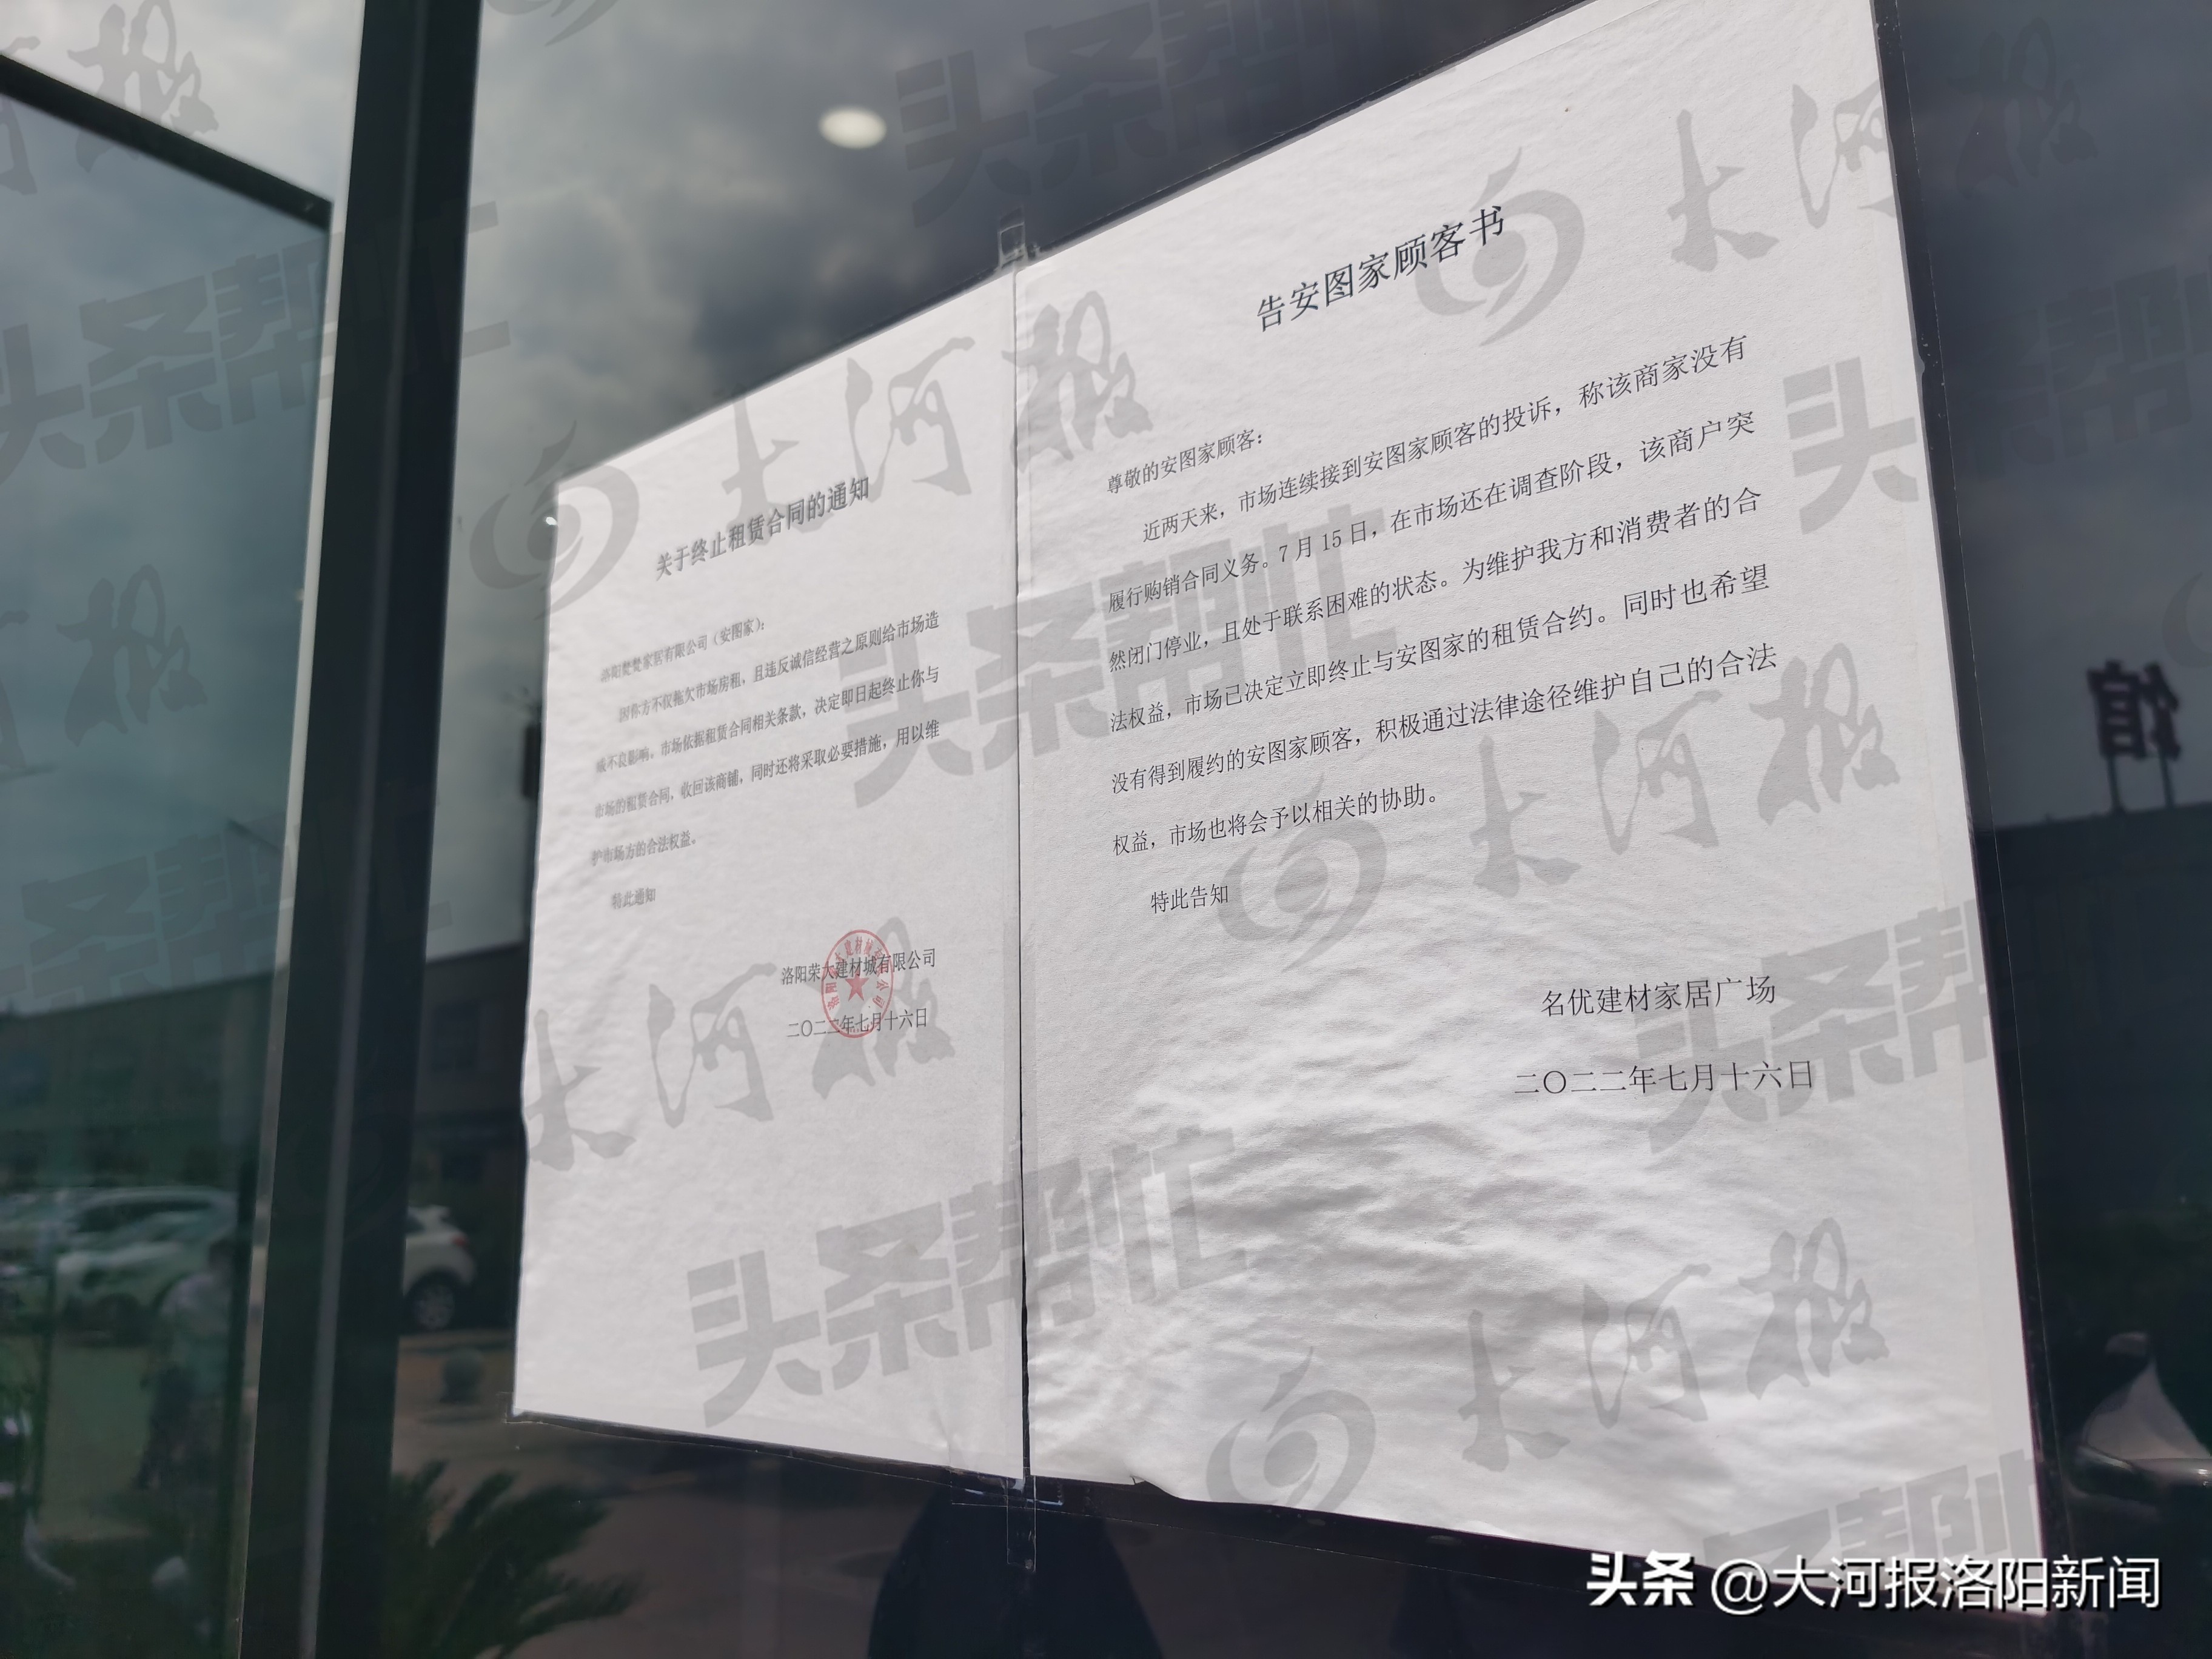 关于终止租赁合同的通知
洛阳梵梵家居有限公司（安图家）：
因你方不仅拖欠市场房租，且违反诚信经营之原则给市场造
成不良影响，市场依据租赁合同相关条款，决定即日起终止你与
市场的租赁合同，收回该商铺，同时还将采取必要措施，用以维
护市场方的合法权益。
特此通知
洛阳荣大建材城有限公司
二〇二二年七月十六日
告安图家顾客书
尊敬的安图家顾客：
近两天来，市场连续接到安图家顾客的投诉，称该商家没有
履行购销合同义务。7月15日，在市场还在调查阶段，该商户突
然闭门停业，且处于联系困难的状态。为维护我方和消费者的合
法权益，市场已决定立即终止与安图家的租赁合约。同时也希望
没有得到履约的安图家顾客，积极通过法律途径维护自己的合法
权益，市场也将会予以相关的协助。
特此告知
名优建材家居广场
二〇二二年七月十六日
馆
大河报
头条帮忙
头条 @大河报洛阳新闻